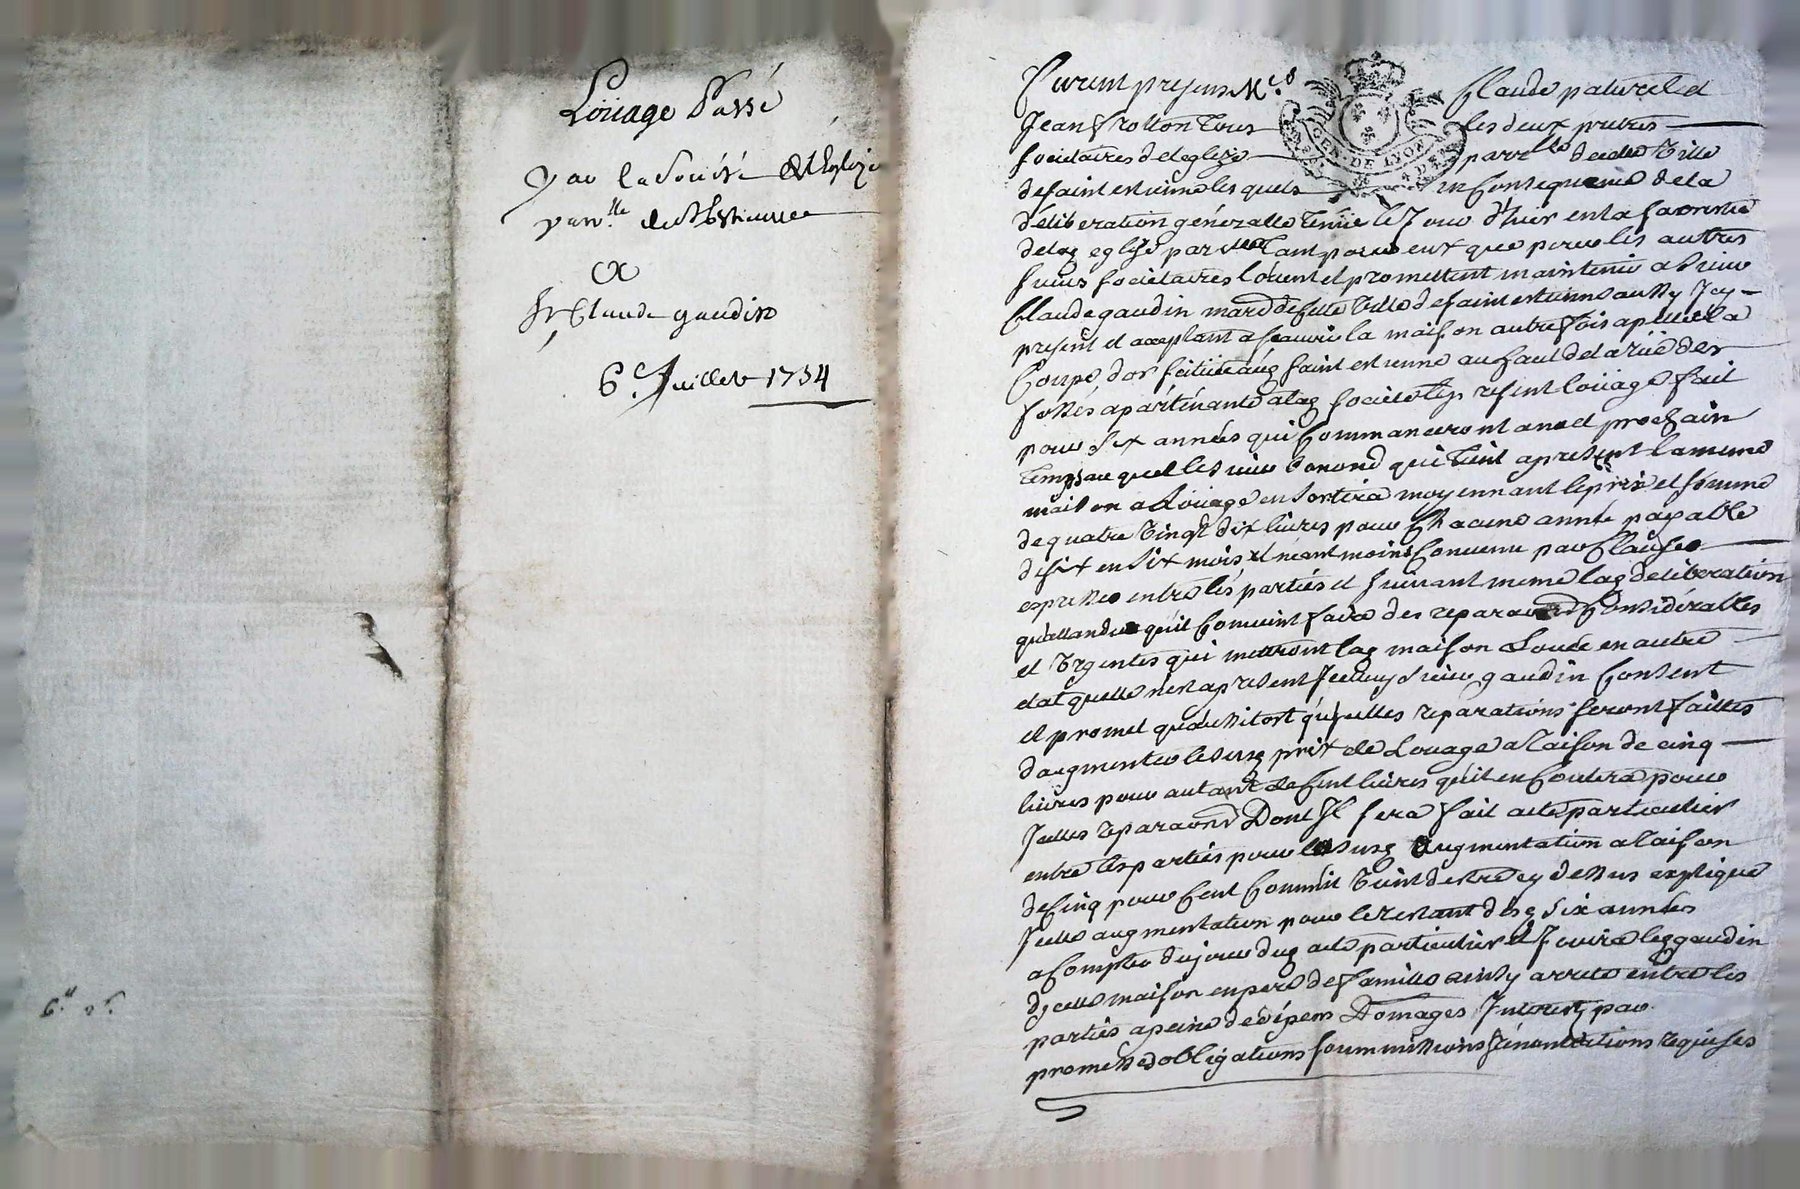 Loüage Passé
par la Société de l'Esglize
parr.lle de St Estienne
a
Sr Claude gaudin
6e Juillet 1754
6.
Furent presens Mes Claude paturel et
Jean frotton tous les deux prêtres
societaires de leglize parr.lle de cette Ville
GEN. DE LYON
de saint estienne lesquels en consequence de la
déliberation généralle tenüe le Jour d'hier en la sacristie
de lad eglise par tant pour eux que pour les autres
sieurs societaires louent et promettent maintenir a sieur
Claude gaudin mard de cette Ville de saint estienne aussy Icy
present et acceptant a scauoir la maison autrefois apellée la
Coupe d'or scitüée aud saint estienne au haut de la rüe des
fossés apartenante a lad societe le present loüage fait
pour six années qui Commanceront a noel prochain
temps au quel le sieur qui tient apresent la meme
maison a Loüage en sortira moyennant le prix et somme
de quatre Vingt dix livres pour Chacune année payable
de six en six mois et néantmoins Convenu par Clause
expresse entre les parties et suivant meme lad deliberation
qu'attandu qu'il Convient faire des reparaons Considérables
et Urgentes qui mettront lad maison Louée en autre
etat quelle n'est apresent Icelluy sieur gaudin Consent
et promet qu'aussitost qu'icelles réparations seront faittes
d'augmenter le susd prix de Louage a raison de cinq
livres pour autant de Cent livres qu'il en Coutera pour
Icelles reparaons Dont Il sera fait acte particulier
entre les parties pour la susd augmentation a raison
de Cinq pour Cent Comme il Vient d'estre cy dessus expliqué
Icelle augmentation pour le restant desd six années
a Compter du jour dud acte particulier et Jouira led gaudin
d'jcelle maison en pere de famille ainsy arreté entre les
parties a peine de dépens Domages Interest par
promesses obligations soummissions renontiations requises